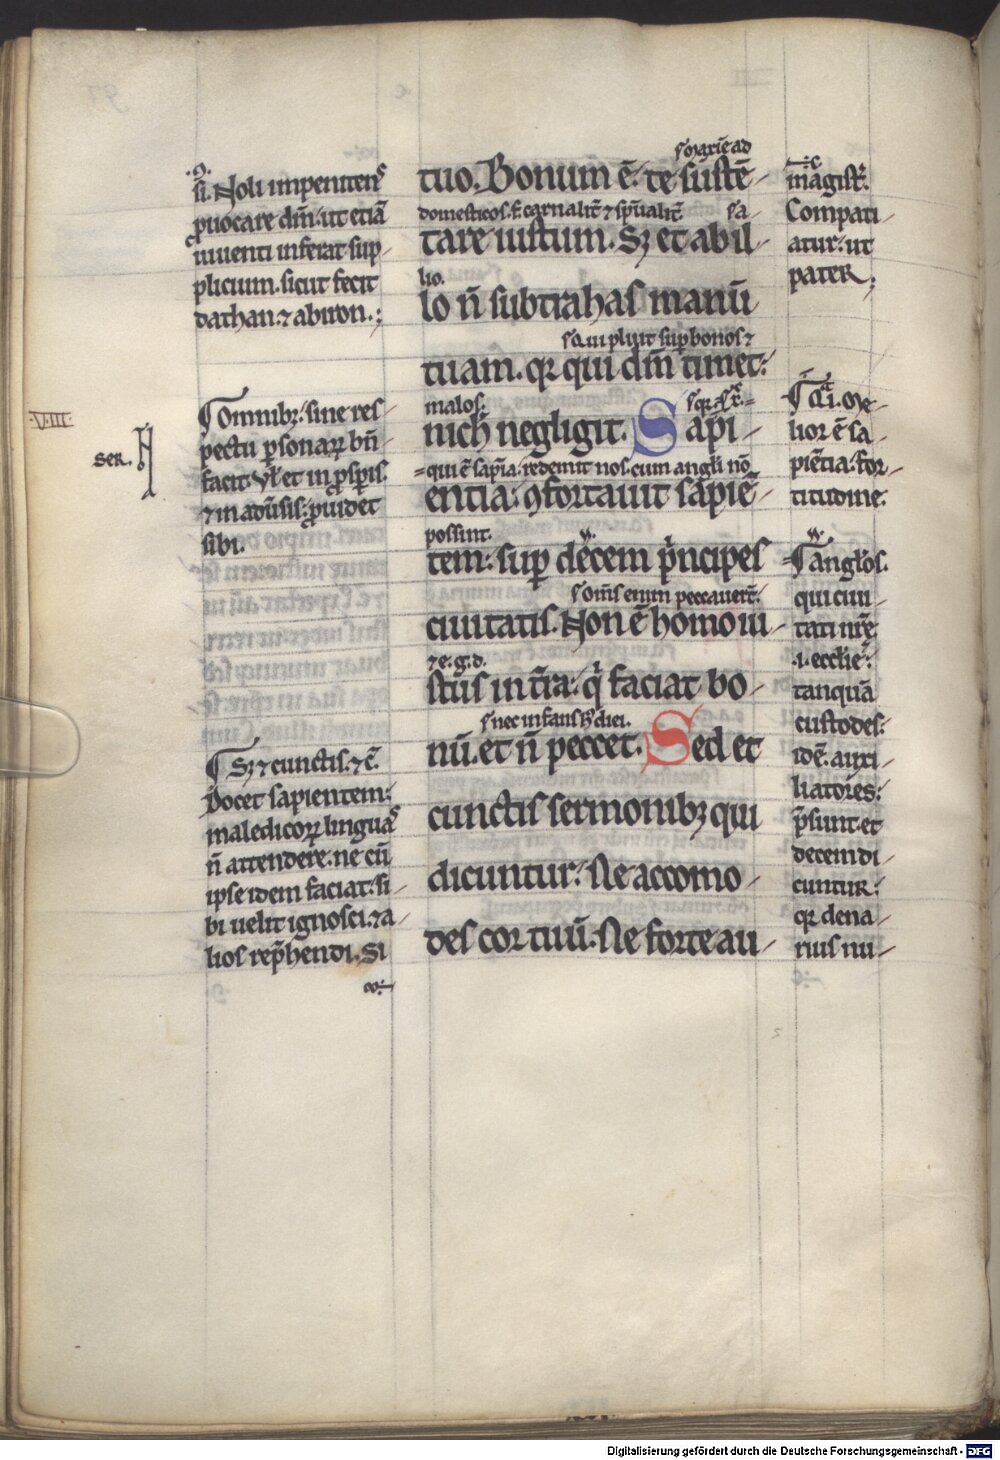 si. Noli impenitens
ꝓuocare dm̄. ut etiā
uiuenti inferat sup-
plicium. sicut fecit
dathan. ⁊ abiron.;
.VIII.
Omnibꝫ. sine res-
pectu ꝑsonaꝝ bn̄
facit. Vł et in ꝓsꝑis.
⁊ in adūsis: ꝓuidet
sibi.
SER.
Sꝫ ⁊ cunctis. ⁊c̄.
Docet sapientem:
maledicoꝝ linguas
n̄ attendere. ne cū
ipse idem faciat. si-
bi uelit ignosci. ⁊ a-
lios rep̄hendi. Si
tuo. Bonum ē. te sustē-
domesticos.
tare iustum. Sꝫ et ab il-
lio.
lo n̄ subtrahas manū
pluit suꝑ bonos ⁊
tuam. qꝛ qui dm̄ timet:
malos.
nichˡ negligit. Sapi-
qui ē sapīa. redemit nos. cum angłi nō
entia: ꝯfortauit sapiē-
possint.
tem: suꝑ decem pͥncipes
om̄s enim peccauert̄.
ciuitatis. Non ē homo iu-
⁊ e. g. d.
stus in tr̄a: qͥ faciat bo-
nec infans
nū. et n̄ peccet. Sed et
cunctis sermonibꝫ qui
dicuntur: Ne accomo-
des cor tuū. Ne forte au-
magistr̄.
Compati-
atur: ut
pater;
.i. Me-
lior ē sa-
piētia: for-
titudine.
anglōs.
qui ciui-
tati nr̄e
.i. ecclīe:
tanquā
custodes:
idē. auxi-
liatores:
p̄sunt. et
decem di-
cuntur:
qꝛ dena-
rius nu-
Digitalisierung gefördert durch die Deutsche Forschungsgemeinschaft - DFG